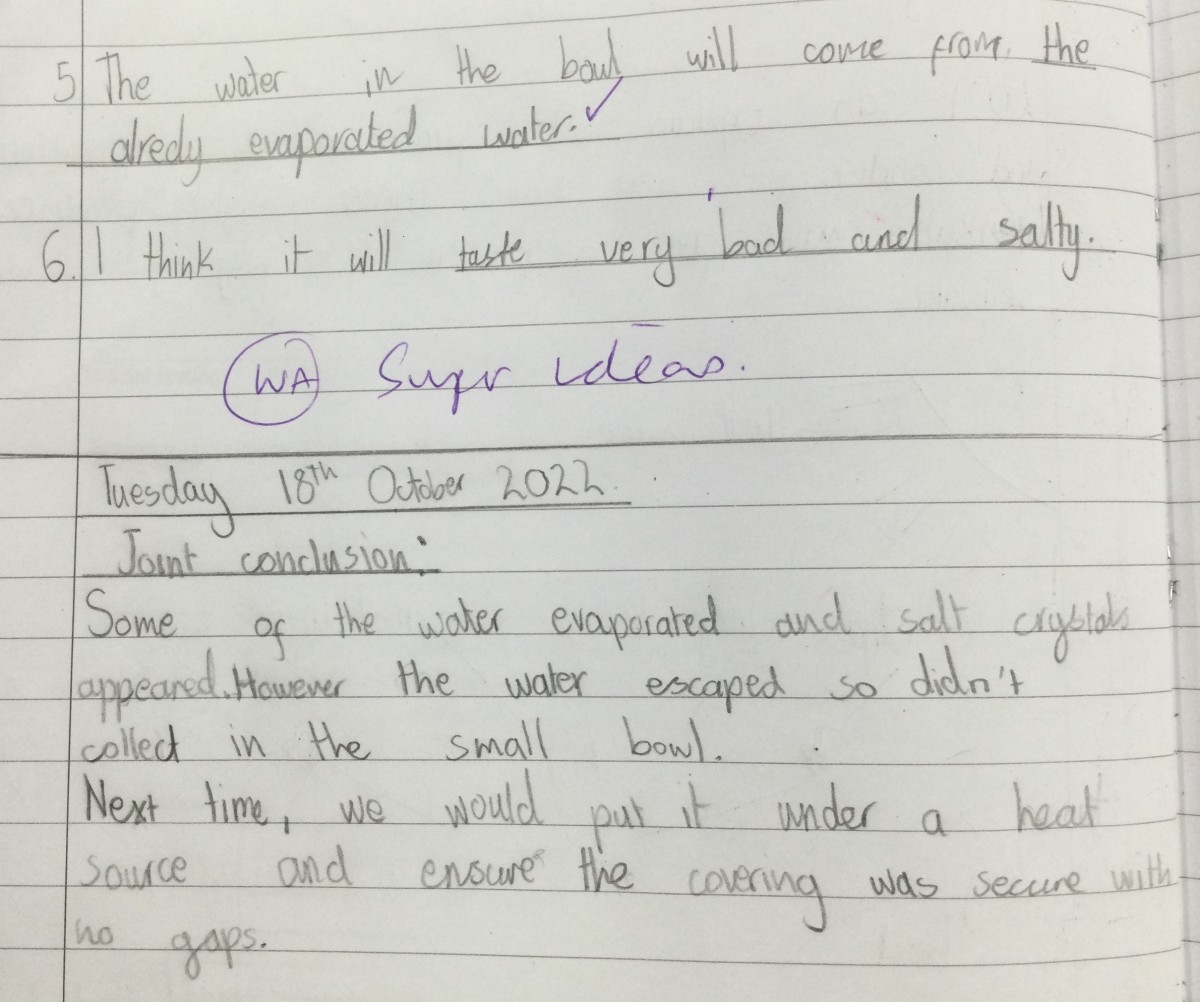 5 The water in the bowl will come from the
alredy evaporated water.
6. I think it will taste very bad and salty.
WA Super ideas.
Tuesday 18th October 2022.
Joint conclusion:
Some of the water evaporated and salt crystals
appeared. However the water escaped so didn't
collect in the small bowl.
Next time, we would put it under a heat
source and ensure the covering was secure with
no gaps.